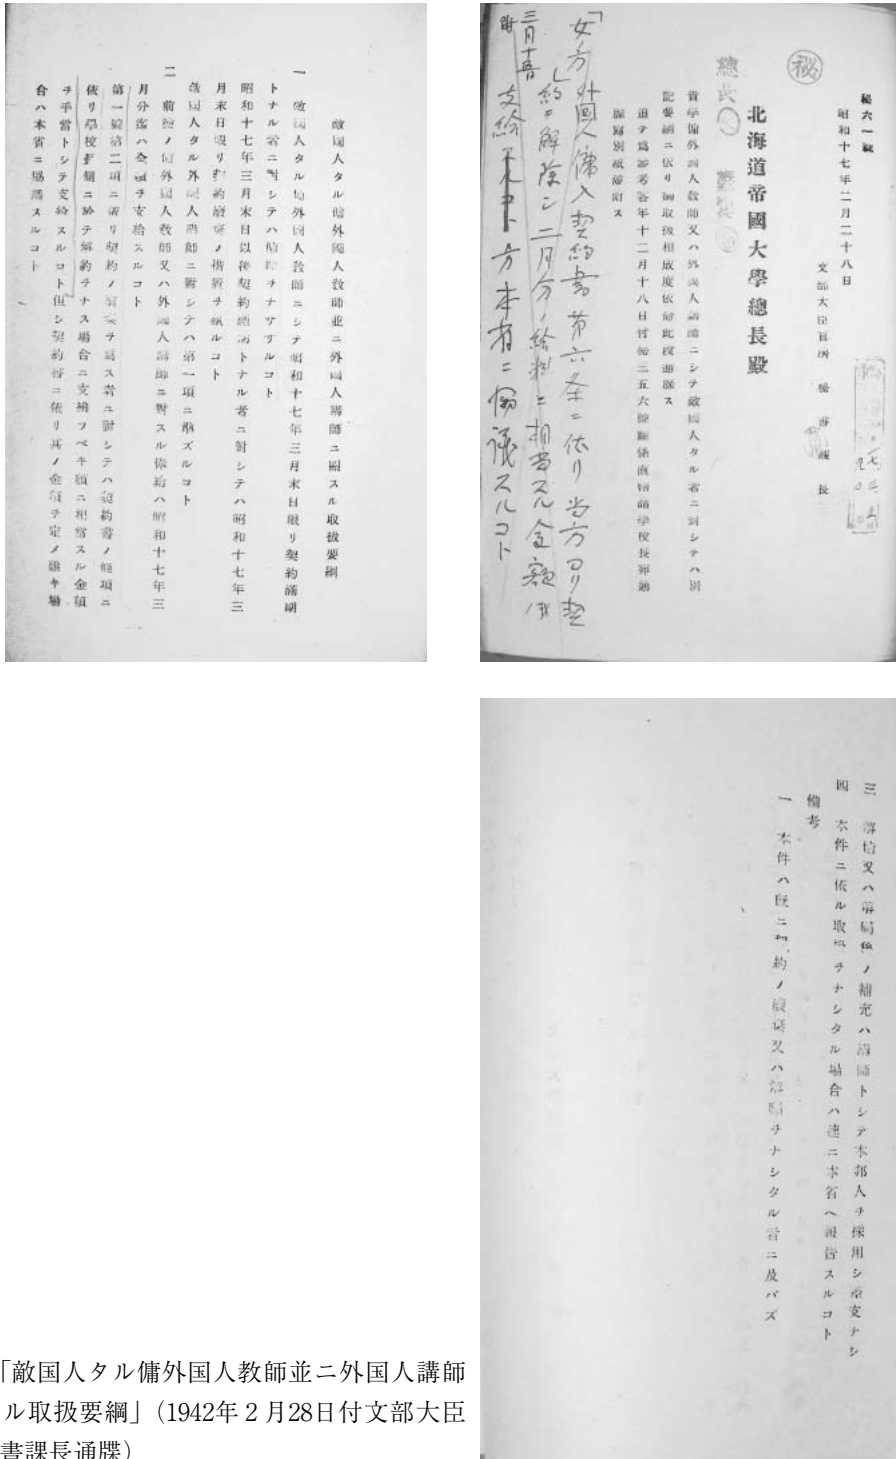 秘
秘六一號
昭和十七年二月二十八日
文部大臣官房 秘書課長
北海道帝國大學總長殿
總長
貴學傭外國人教師又ハ外國人講師ニシテ敵國人タル者ニ對シテハ別
記要綱ニ依リ御取扱相成度依命此段通牒ス
追テ爲參考客年十二月十八日付發三五六號關係直轄諸學校長宛通
牒寫別紙添附ス
外國人傭入契約書第六条ニ依リ当方ヨリ契
約ヲ解除シ二月分ノ給料ニ相当スル金額
支給 方本省ニ協議スルコト
敵國人タル傭外國人教師並ニ外國人講師ニ關スル取扱要綱
一 敵國人タル傭外國人教師ニシテ昭和十七年三月末日限リ契約滿期
トナル者ニ對シテハ ヲナサザルコト
昭和十七年三月末日以後契約滿期トナル者ニ對シテハ昭和十七年三
月末日限リ契約廢棄ノ措置ヲ執ルコト
敵國人タル外國人講師ニ對シテハ第一項ニ準ズルコト
二 前 ノ傭外國人教師又ハ外國人講師ニ對スル俸給ハ昭和十七年三
月分迄ハ全額ヲ支給スルコト
第一號第二項ニ依リ契約ノ廢棄ヲ爲ス者ニ對シテハ契約書ノ條項ニ
依リ學校 ニ於テ解約ヲナス場合ニ支給スベキ額ニ相當スル金額
ヲ手當トシテ支給スルコト但シ契約書ニ依リ其ノ金額ヲ定メ難キ場
合ハ本省ニ協議スルコト
三 解傭又ハ解囑後ノ補充ハ講師トシテ本邦人ヲ採用シ差支ナシ
四 本件ニ依ル取扱ヲナシタル場合ハ速ニ本省ヘ報告スルコト
備考
一 本件ハ既ニ 約ノ廢棄又ハ解囑ヲナシタル者ニ及バズ
「敵国人タル傭外国人教師並ニ外国人講師
ル取扱要綱」（1942年２月28日付文部大臣
書課長通牒）